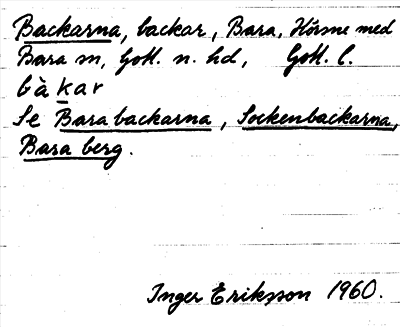 Backarna, backar, Bara, Hörsne med
Bara sn, Gotl. n. hd, Gotl. l.
bàkar
Se Barabackarna, Sockenbackarna,
Bara berg.
Inger Eriksson 1960.